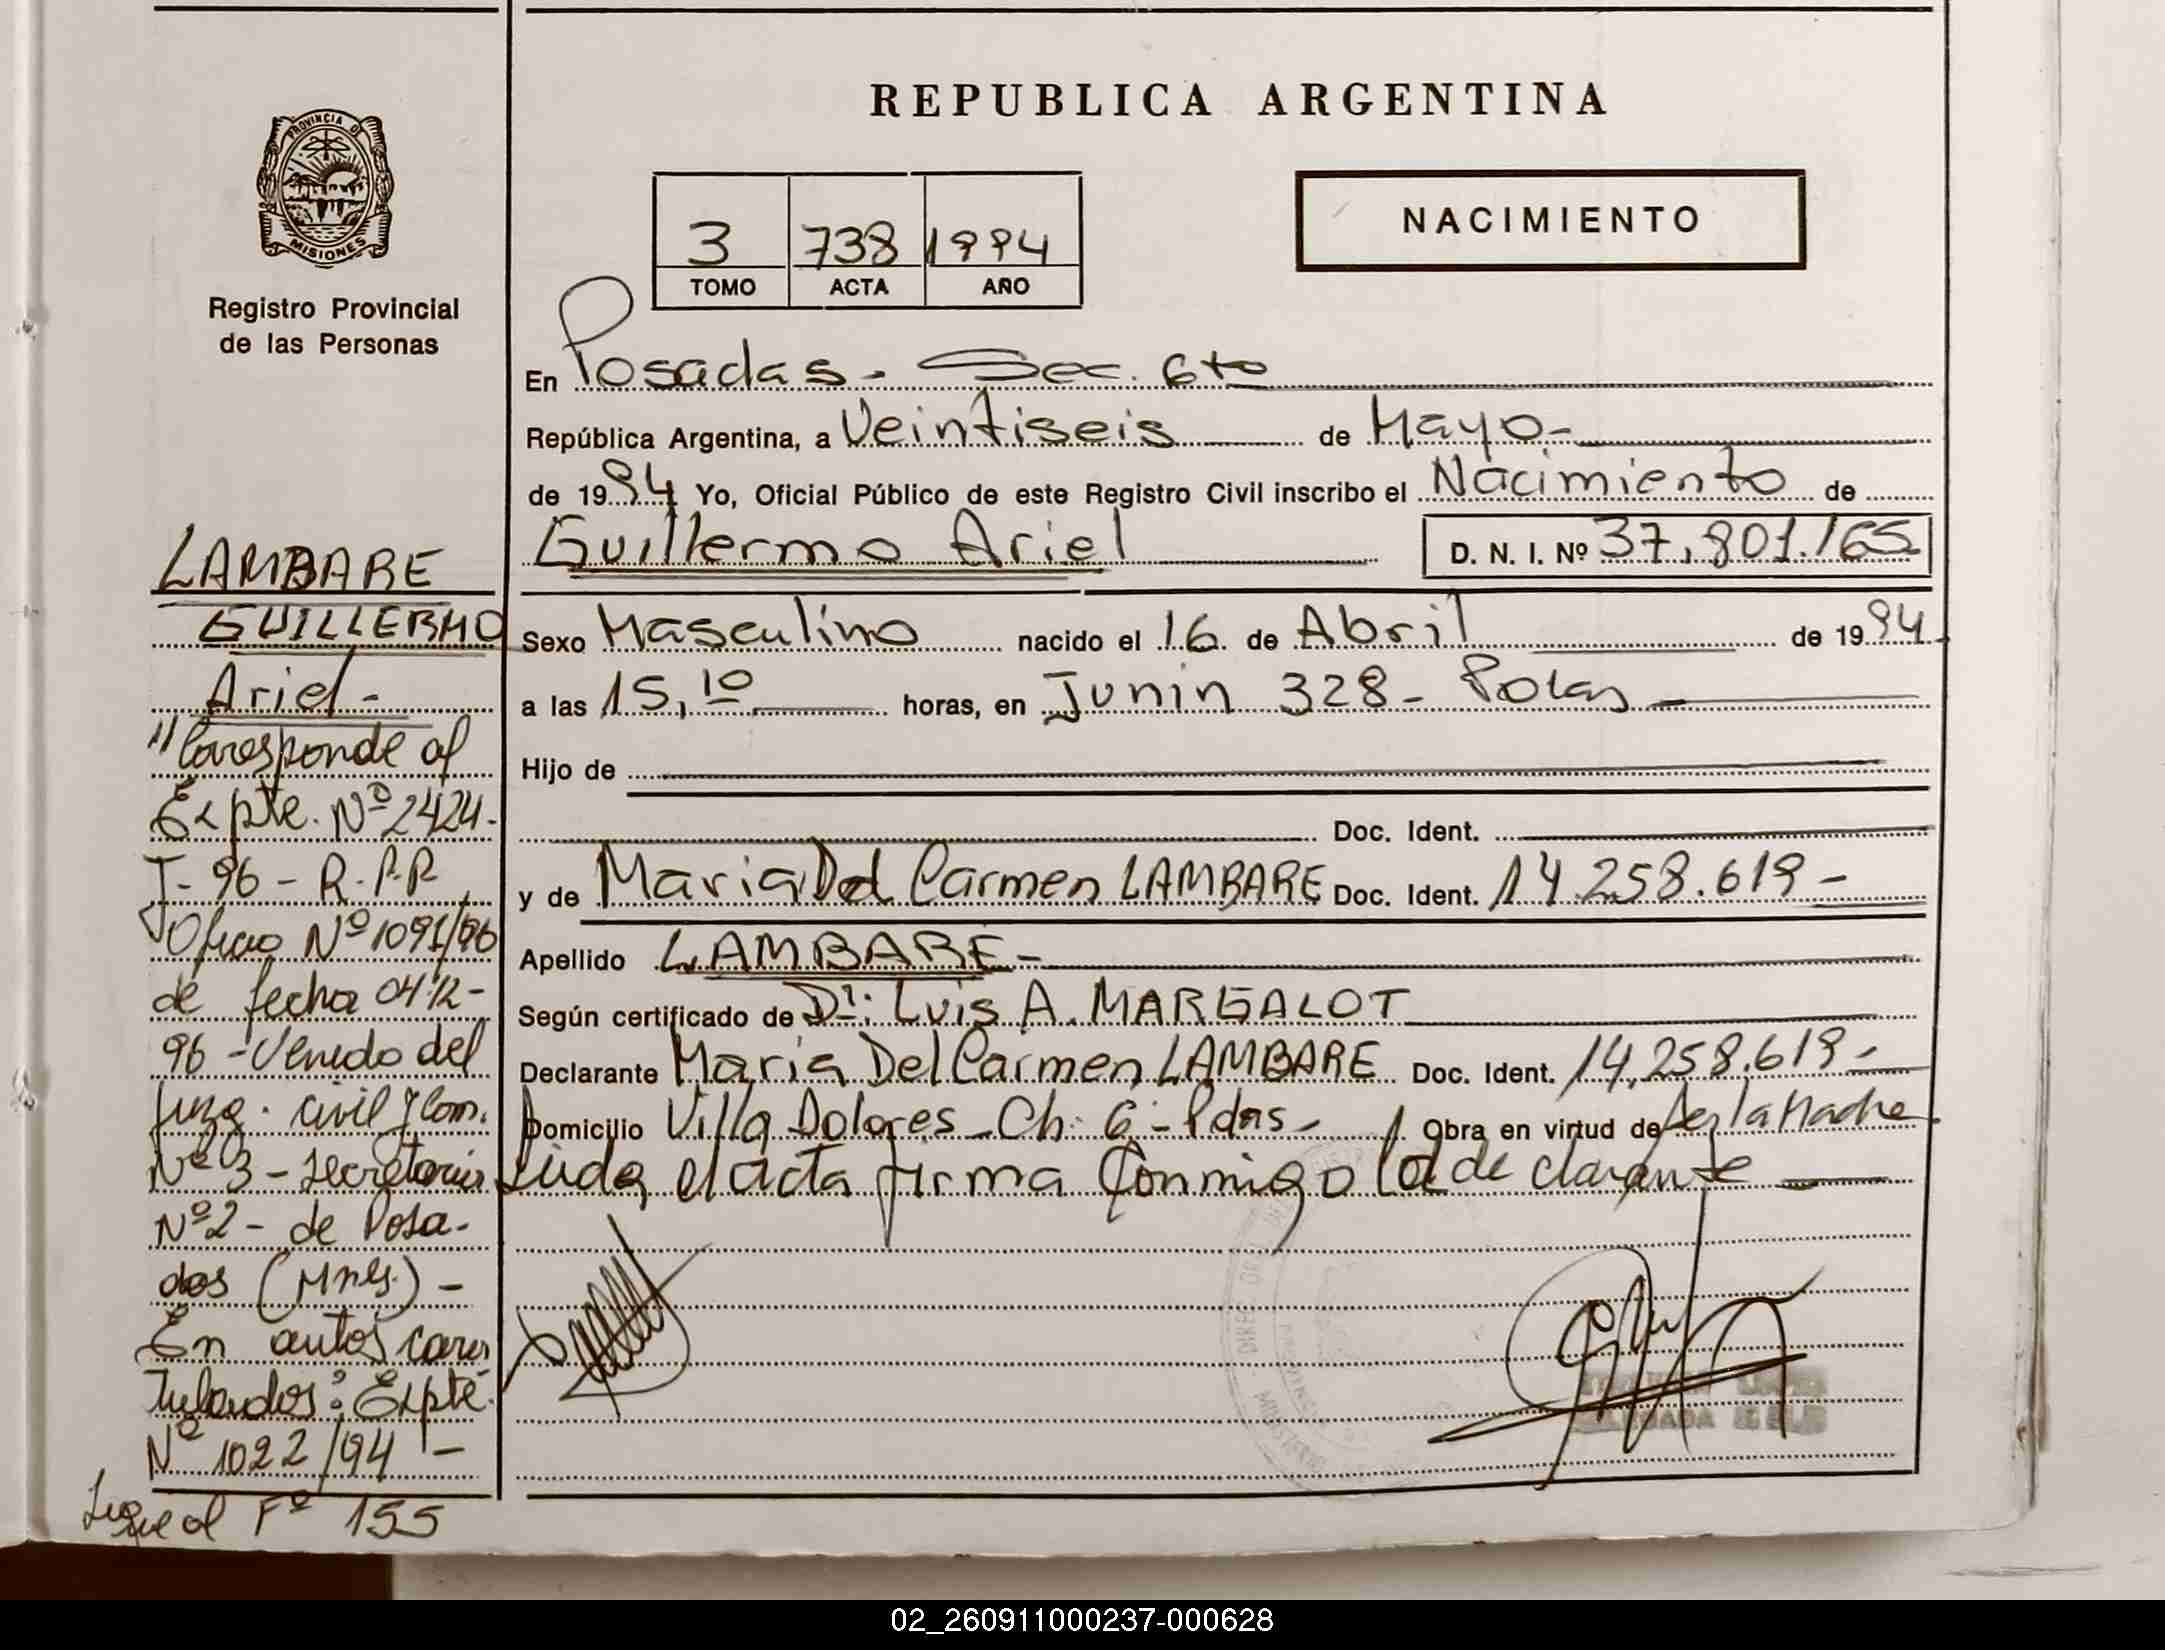 REPUBLICA ARGENTINA
PROVINCIA DE
MISIONES
Registro Provincial
de las Personas
3 738 1994
TOMO ACTA AÑO
NACIMIENTO
En Posadas - Sec. 6to
República Argentina, a Veintiseis de Mayo -
de 1994 Yo, Oficial Público de este Registro Civil inscribo el Nacimiento de
Guillermo Ariel D. N. I. Nº 37.801.165
Sexo Masculino nacido el 16 de Abril de 1994
a las 15,10 horas, en Junin 328 -
Hijo de
Doc. Ident.
y de Maria Del Carmen LAMBARE Doc. Ident. 14.258.619 -
Apellido LAMBARE -
Según certificado de Dr: Luis A. MARGALOT
Declarante Maria Del Carmen LAMBARE Doc. Ident. 14.258.619 -
Domicilio Villa Dolores - Ch. 6 - Pdas - Obra en virtud de ser la Madre
Leida el acta firma Conmigo la declarante
LAMBARE
GUILLERMO
Ariel -
"Corresponde al
Expte. Nº 2424 -
J - 96 - R.P.P
Oficio Nº 1091/96
de fecha 04-12-
96 - Venido del
Juzg. Civil y Com.
Nº 3 - Secretaria
Nº 2 - de Posa-
das (Mnes.) -
En autos cara
tulados: Expte.
Nº 1022/94 -
Sigue al Fº 155
02_260911000237-000628